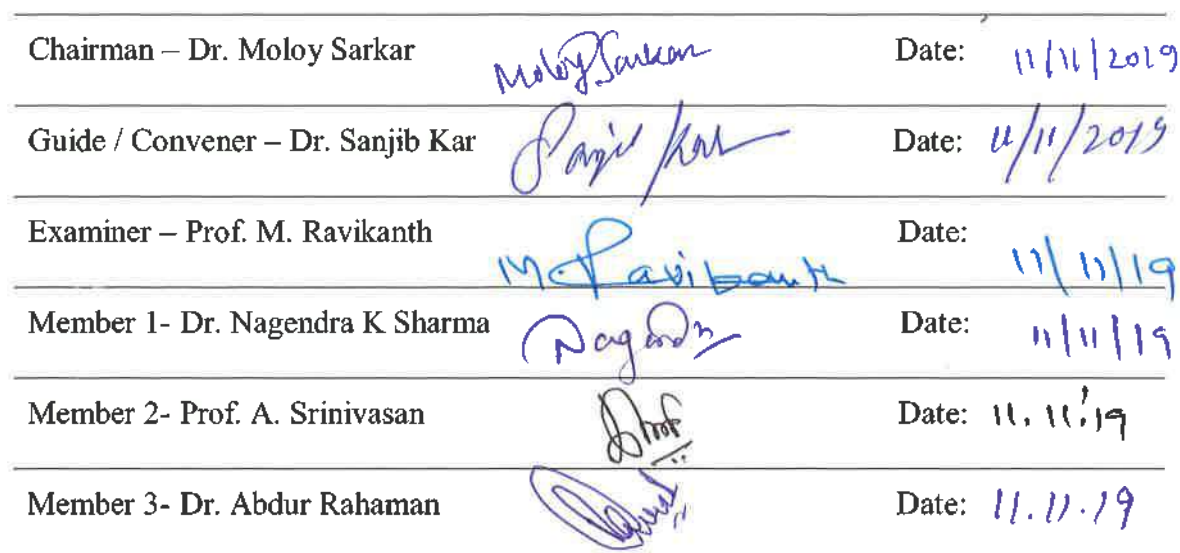 Chairman – Dr. Moloy Sarkar Moloy Sarkar Date: 11/11/2019
Guide / Convener – Dr. Sanjib Kar Sanjib Kar Date: 11/11/2019
Examiner – Prof. M. Ravikanth M. Ravikanth Date: 11/11/19
Member 1- Dr. Nagendra K Sharma Date: 11/11/19
Member 2- Prof. A. Srinivasan Date: 11.11.19
Member 3- Dr. Abdur Rahaman Date: 11.11.19